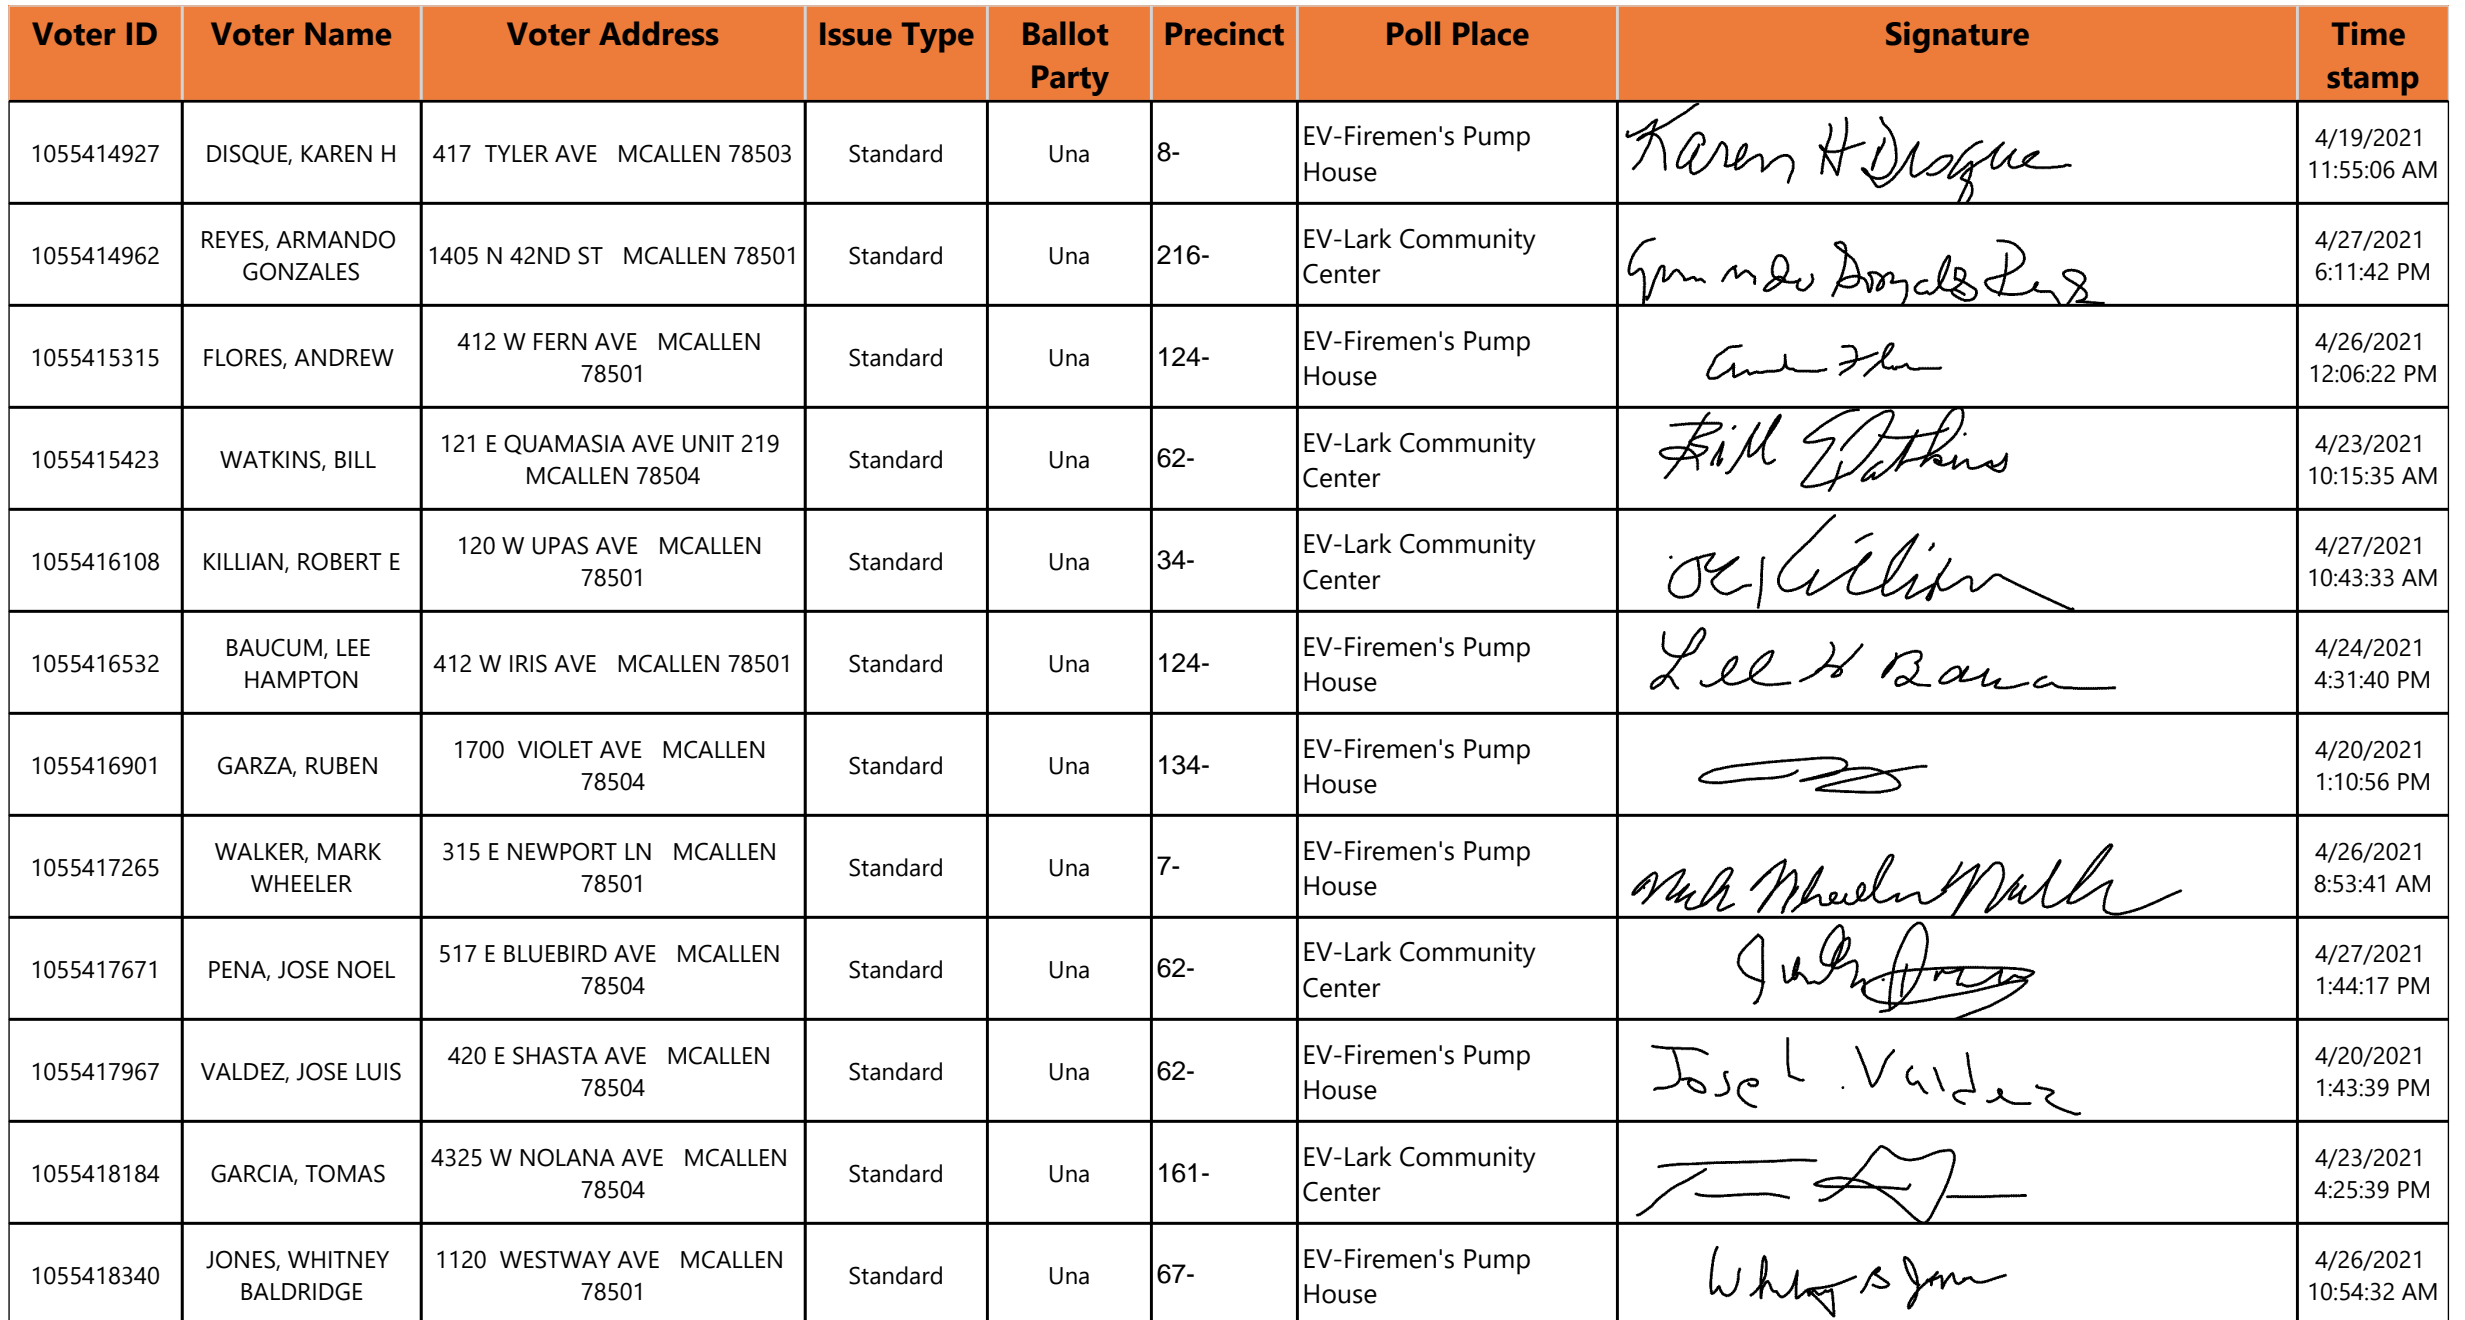 Voter ID Voter Name Voter Address Issue Type Ballot Party Precinct Poll Place Signature Time stamp
1055414927 DISQUE, KAREN H 417 TYLER AVE MCALLEN 78503 Standard Una 8- EV-Firemen's Pump House Karen H Disque 4/19/2021 11:55:06 AM
1055414962 REYES, ARMANDO GONZALES 1405 N 42ND ST MCALLEN 78501 Standard Una 216- EV-Lark Community Center 4/27/2021 6:11:42 PM
1055415315 FLORES, ANDREW 412 W FERN AVE MCALLEN 78501 Standard Una 124- EV-Firemen's Pump House 4/26/2021 12:06:22 PM
1055415423 WATKINS, BILL 121 E QUAMASIA AVE UNIT 219 MCALLEN 78504 Standard Una 62- EV-Lark Community Center Bill Watkins 4/23/2021 10:15:35 AM
1055416108 KILLIAN, ROBERT E 120 W UPAS AVE MCALLEN 78501 Standard Una 34- EV-Lark Community Center Killian 4/27/2021 10:43:33 AM
1055416532 BAUCUM, LEE HAMPTON 412 W IRIS AVE MCALLEN 78501 Standard Una 124- EV-Firemen's Pump House Lee H 4/24/2021 4:31:40 PM
1055416901 GARZA, RUBEN 1700 VIOLET AVE MCALLEN 78504 Standard Una 134- EV-Firemen's Pump House 4/20/2021 1:10:56 PM
1055417265 WALKER, MARK WHEELER 315 E NEWPORT LN MCALLEN 78501 Standard Una 7- EV-Firemen's Pump House Mark Wheeler Walker 4/26/2021 8:53:41 AM
1055417671 PENA, JOSE NOEL 517 E BLUEBIRD AVE MCALLEN 78504 Standard Una 62- EV-Lark Community Center 4/27/2021 1:44:17 PM
1055417967 VALDEZ, JOSE LUIS 420 E SHASTA AVE MCALLEN 78504 Standard Una 62- EV-Firemen's Pump House Jose L. Valdez 4/20/2021 1:43:39 PM
1055418184 GARCIA, TOMAS 4325 W NOLANA AVE MCALLEN 78504 Standard Una 161- EV-Lark Community Center 4/23/2021 4:25:39 PM
1055418340 JONES, WHITNEY BALDRIDGE 1120 WESTWAY AVE MCALLEN 78501 Standard Una 67- EV-Firemen's Pump House Whitney B Jones 4/26/2021 10:54:32 AM